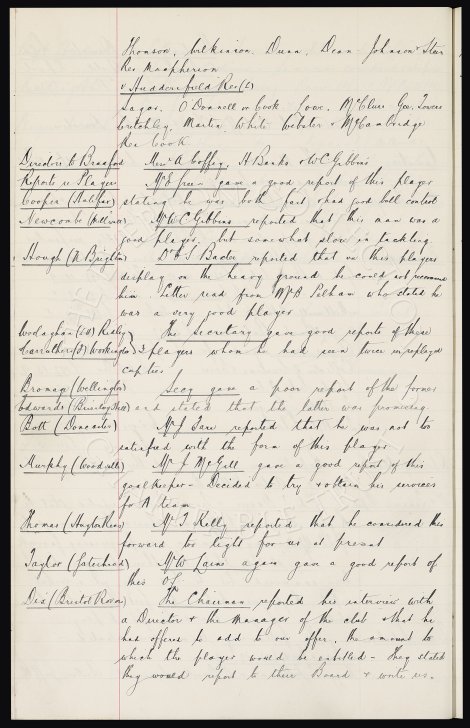 Thomson, Wilkinson, Dunn, Dean, Johnson & Stein
Res Macpherson
v Huddersfield Res (a)
Sagar, O'Donnell or Cook, Lowe, McClure, Gee, Towers
Critchley, Martin, White, Webster & McCambridge
Res Cook
Directors to Bradford Messrs A Coffey, H Banks & W C Gibbins
Reports re Players Mr E Green gave a good report of this player
Cooper (Halifax) stating he was both fast & had good ball control
Newcombe Mr W C Gibbins reported that this man was a
good player, but somewhat slow in tackling.
Hough (N. Brighton) Dr S Baxter reported that on this players
display on the heavy ground he could not recommend
him. Letter read from Mr B Pelham who stated he
was a very good player
The Secretary gave good reports of these
Carruthers Workington players whom he had seen twice in replayed
cup ties
(Wellington) Secy gave a poor report of the former
Edwards and stated that the latter was promising.
Bott (Doncaster) Mr J Sare reported that he was not to
satisfied with the form of this player
Murphy Mr J McGall gave a good report of this
goalkeeper - Decided to try & obtain his services
for A team.
Thomas Mr T Kelly reported that he considered this
forward too light for us at present
Taylor (Gateshead) Mr W again gave a good report of
this O.L.
Dix (Bristol Rovers) The Chairman reported his interview with
a Director & the Manager of the club & that he
had offered to add to our offer, the amount to
which the player would be entitled - They stated
they would report to their Board & write us.